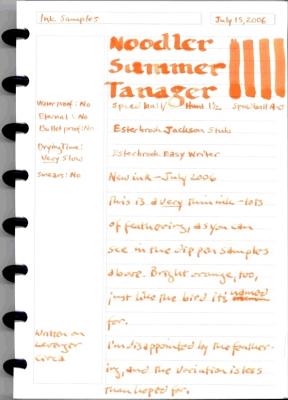 Ink Samples
July 15, 2006
Noodler
Summer
Tanager
Waterproof: No
Speedball/ Hunt 1½ Speedball A-0
Eternal: No
Bulletproof: No
Esterbrook Jackson Stub
Drying Time:
Very Slow
Esterbrook Easy Writer
Smears: No
New ink - July 2006
This is a very thin ink - lots
of feathering, as you can
see in the dip pen samples
above. Bright orange, too,
just like the bird its named
for.
Written on
Levenger
Circa
I'm disappointed by the feather-
ing, and the variation is less
than hoped for.